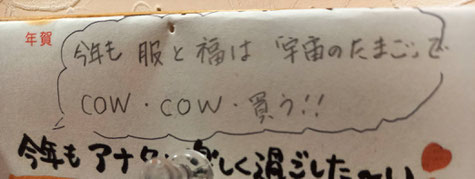 年賀
今年も 服と福は 「宇宙のたまご」で
COW・COW・買う!!
今年もアナタ しく過ごした〜い